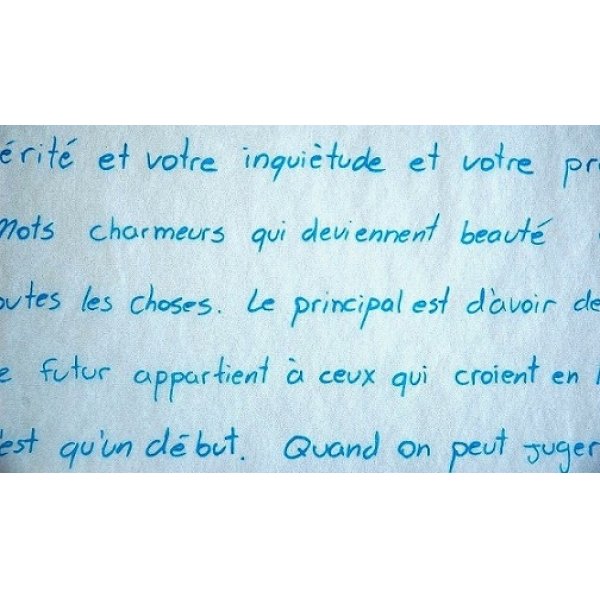 érité et votre inquiètude et votre pr
Mots charmeurs qui deviennent beauté
outes les choses. Le principal est d'avoir de
e futur appartient à ceux qui croient en l
'est qu'un début. Quand on peut juger